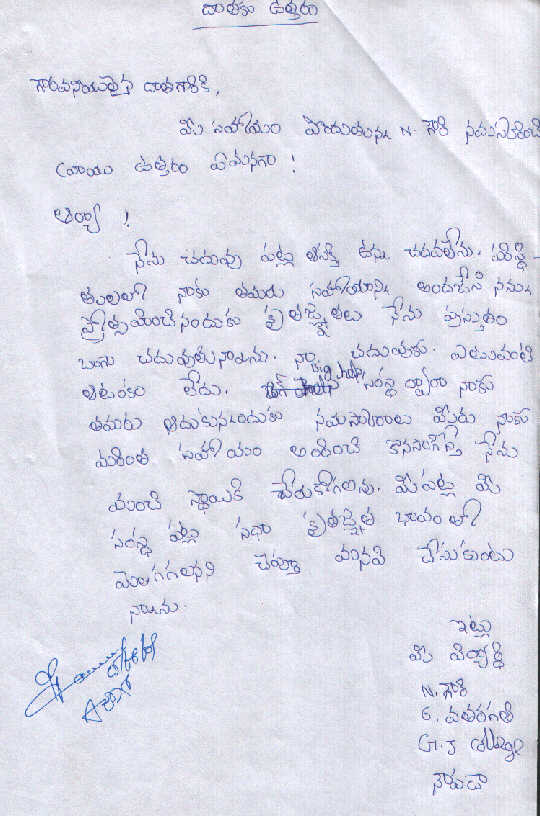 దాతకు ఉత్తరం
గౌరవనీయులైన దాతగారికి,
మీ సహాయం పొందుతున్న N. గౌరి నమస్కరించి
వ్రాయు ఉత్తరం ఏమనగా !
అయ్యా !
నేను చదువు పట్ల ఆసక్తి ఉన్న చదవలేను.
నాకు తమరు సహాయాన్ని అందజేసి నన్ను
ప్రోత్సహించినందుకు కృతజ్ఞతలు నేను ప్రస్తుతం
బాగు చదువుతున్నాను. నా చదువుకు ఎటువంటి
ఆటంకం లేదు. సంస్థ ద్వారా నాకు
తమరు ఆదుకున్నందుకు నమస్కారాలు మీరు నాకు
మరింత సహాయం అందించి కొనసాగిస్తే నేను
మంచి స్థాయికి చేరుకోగలను. మీ పట్ల మీ
సంస్థ పట్ల సదా కృతజ్ఞత భావంతో
మెలగగలనని చెప్తూ మనవి చేసుకుంటు
న్నాను.
ఇట్లు
మీ విద్యార్థి
N. గౌరి
6. వ తరగతి
G.J